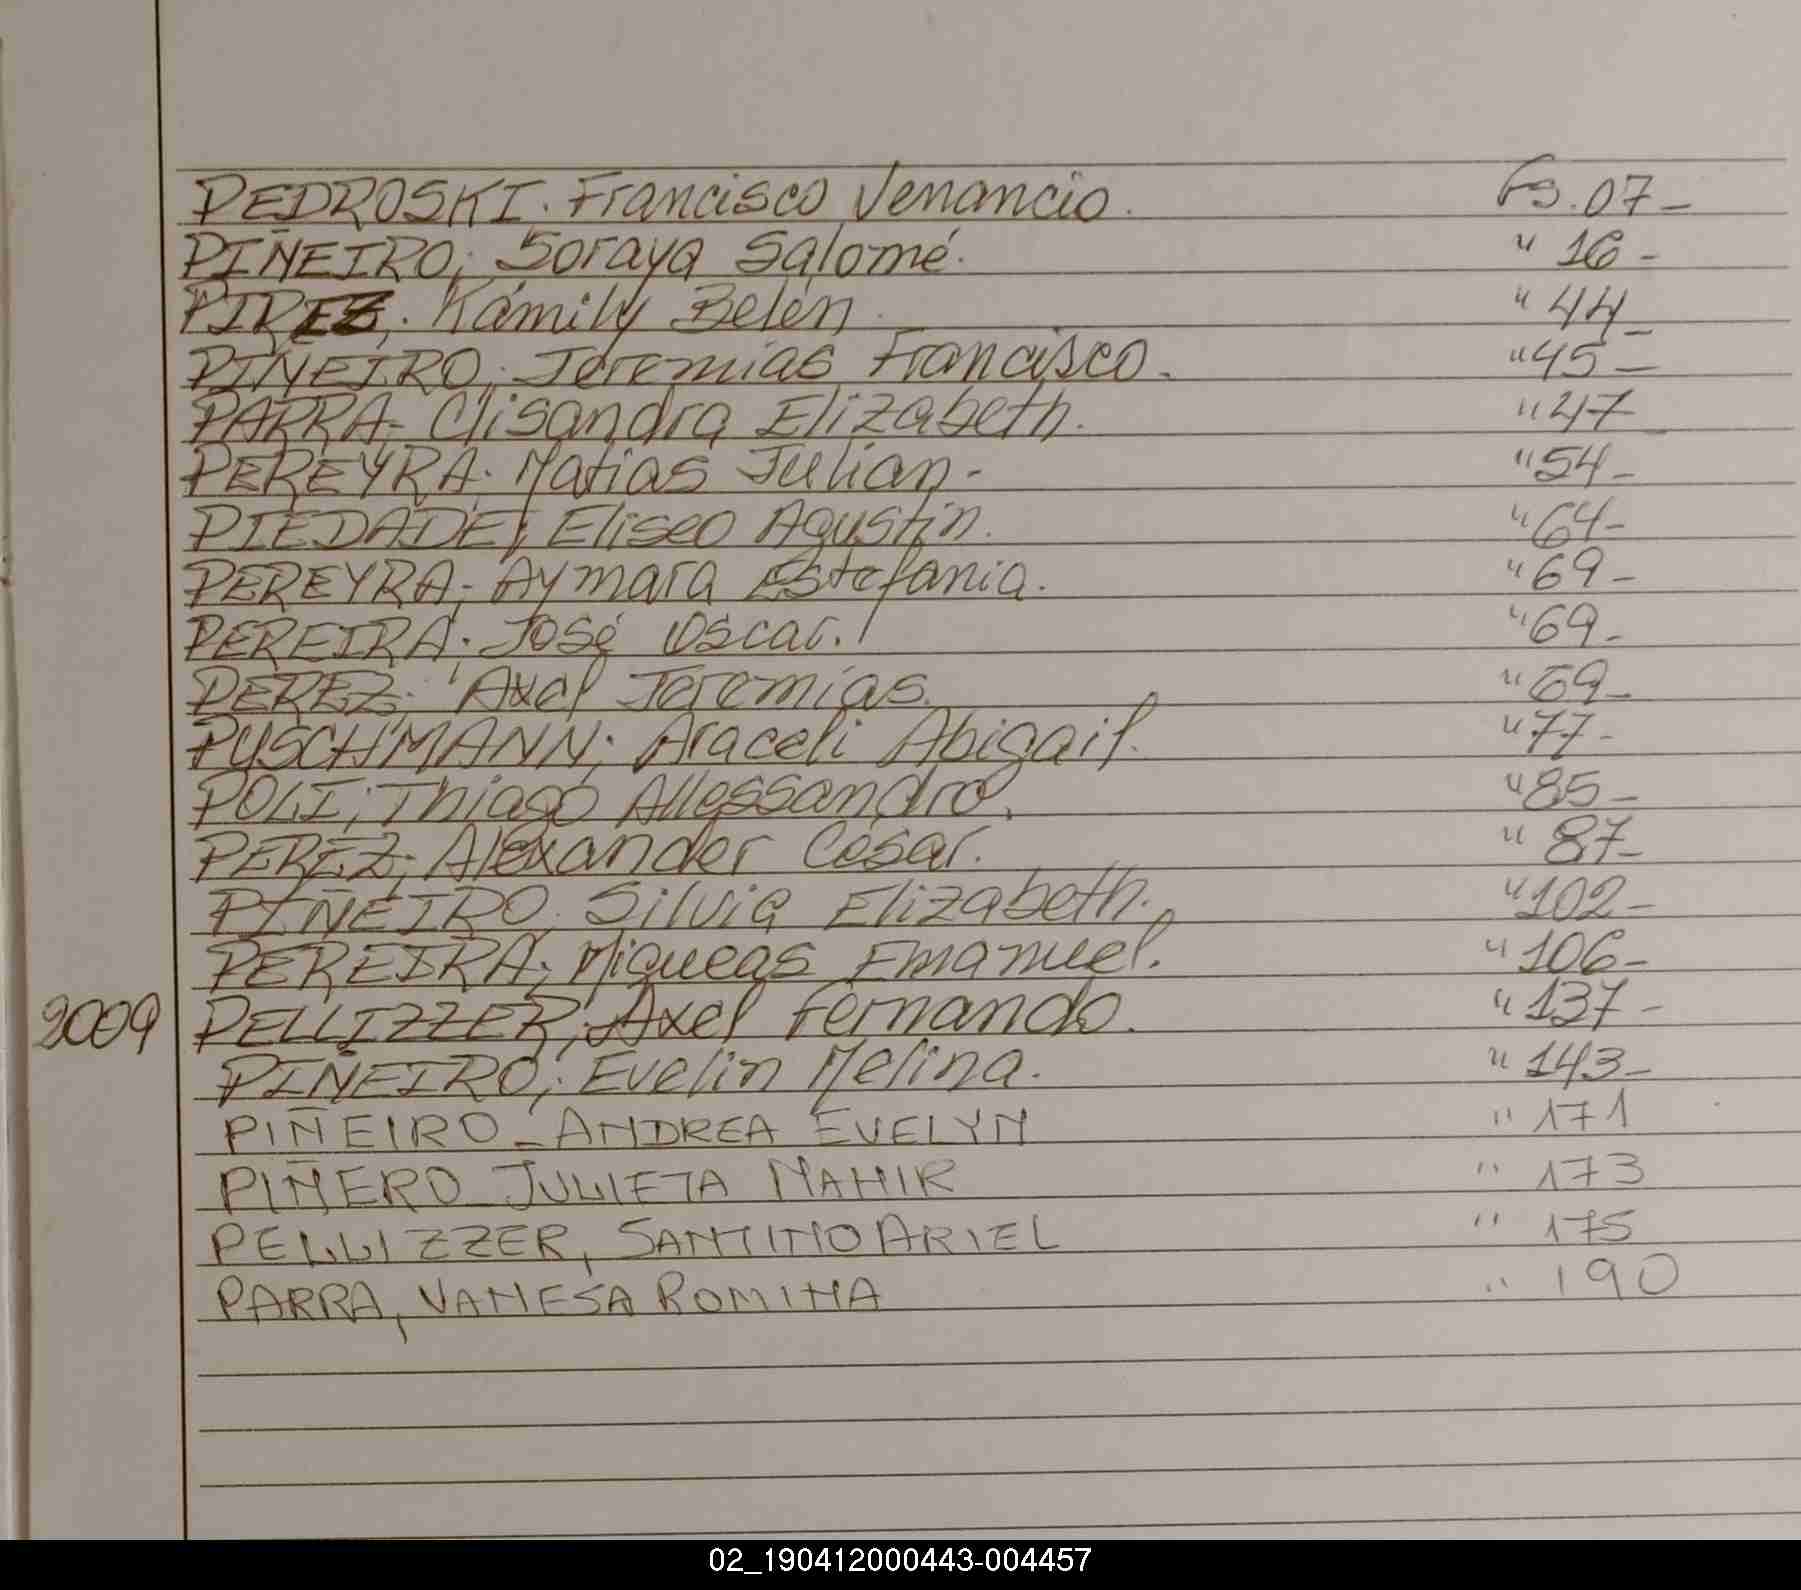 PEDROSKI. Francisco Venancio. Fs. 07-
PIÑEIRO; Soraya Salomé. " 16-
PIREZ; Kámily Belén. " 44-
PIÑEIRO; Jeremías Francisco. " 45-
PARRA- Clisandra Elizabeth. " 47-
PEREYRA. Matias Julian- " 54-
PIEDADE; Eliseo Agustín. " 64-
PEREYRA; Aymara Estefania. " 69-
PEREIRA; José Oscar. " 69-
PEREZ; Axel Jeremías. " 69-
PYSCHMANN; Araceli Abigail. " 77-
POLI; Thiago Allessandro. " 85-
PEREZ; Alexander César. " 87-
PIÑEIRO. Silvia Elizabeth. " 102-
PEREIRA; Miqueas Emanuel. " 106-
2009 PELLIZZER; Axel Fernando. " 137-
PIÑEIRO; Evelin Melina. " 143-
PIÑEIRO_ANDREA EVELYN " 171
PIÑERO_JULIETA NAHIR " 173
PELLIZZER, SANTINO ARIEL " 175
PARRA, VANESA ROMINA " 190
02_190412000443-004457